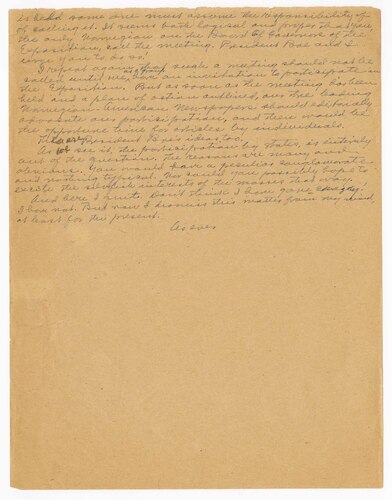 is held some one must assume the responsibility of
calling it. It seems both logical and proper that you,
the only Norwegian on the Board of Governors of the
Exposition, call the meeting. President Boe and I
urge you to do so!
I repeat again, that such a meeting should not be
called until we, as a group have an invitation to participate in
the Exposition. But as soon as the meeting has been
held and a plan of action outlined, our three leading
Norwegian-American Newspapers should editorially
advocate our participation, and there would be
the opportune time for articles by individuals.
This is President Boe's idea too.
As we see it, the participation by States, is entirely
out of the question, the reasons are many and
obvious. You would have a conglomerate
and nothing typical. Nor could you possibly hope to
excite the interests of the masses that way.
And here I quit. Don't think I have gone crazy!
I have not. But now I dismiss this matter from my mind,
at least for the present.
As ever